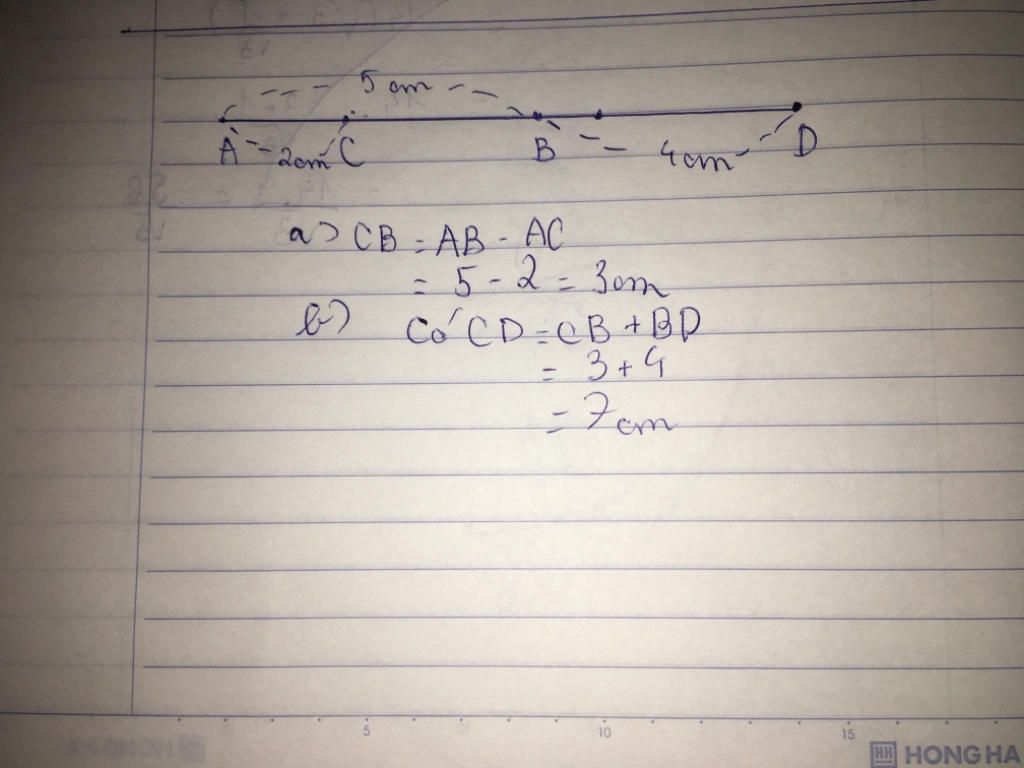 5 cm
A 2cm C B 4cm D
a) CB = AB - AC
= 5 - 2 = 3cm
b) Có CD = CB + BD
= 3 + 4
= 7cm
5 10 15
HH HONG HA